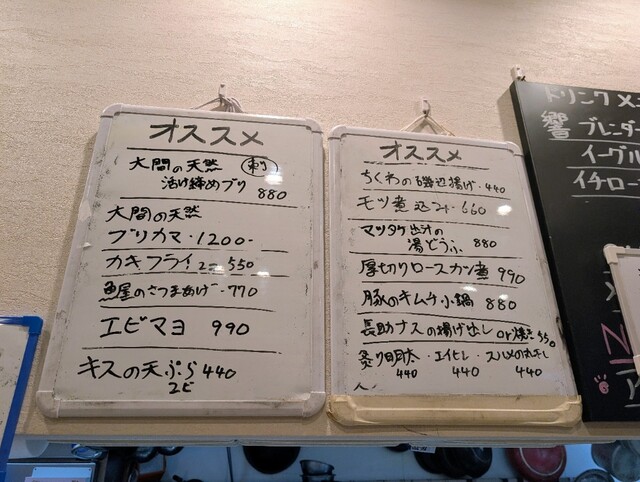 オススメ
大間の天然 刺
活け締めブリ 880
大間の天然
ブリカマ・1200-
カキフライ 2コ 550
魚屋のさつまあげ・770
エビマヨ 990
キスの天ぷら 440
2ビ
オススメ
ちくわの磯辺揚げ・440
モツ煮込み・660
マツタケ出汁の
湯どうふ 880
厚切りロースカツ煮 990
豚のキムチ小鍋 880
長助ナスの揚げ出し or焼き 550
炙り明太・エイヒレ・スルメの丸干し
440 440 440
ドリンクメニ
響 ブレンダー
イーグル
イチロー